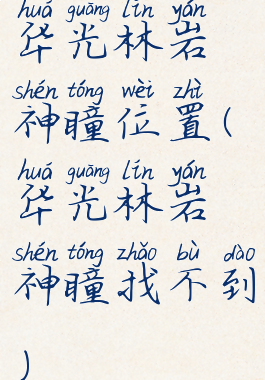 huá guāng lín yán
华光林岩
shén tóng wèi zhì
神瞳位置(
huá guāng lín yán
华光林岩
shén tóng zhǎo bù dào
神瞳找不到
)